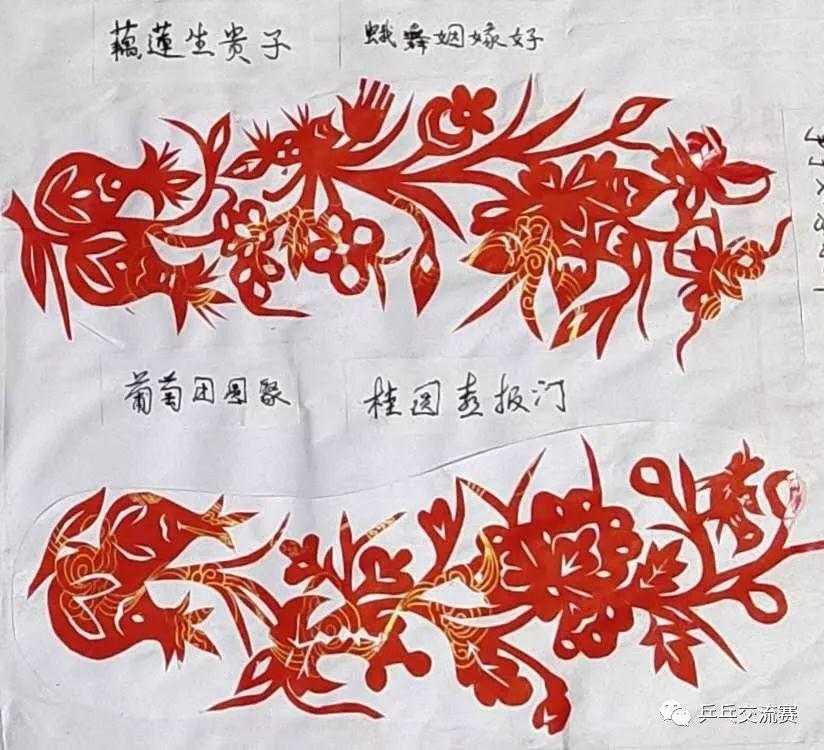 藕蓮生贵子
蛾舞姻嫁好
葡萄团圆聚
桂圆喜报汀
乒乓交流赛